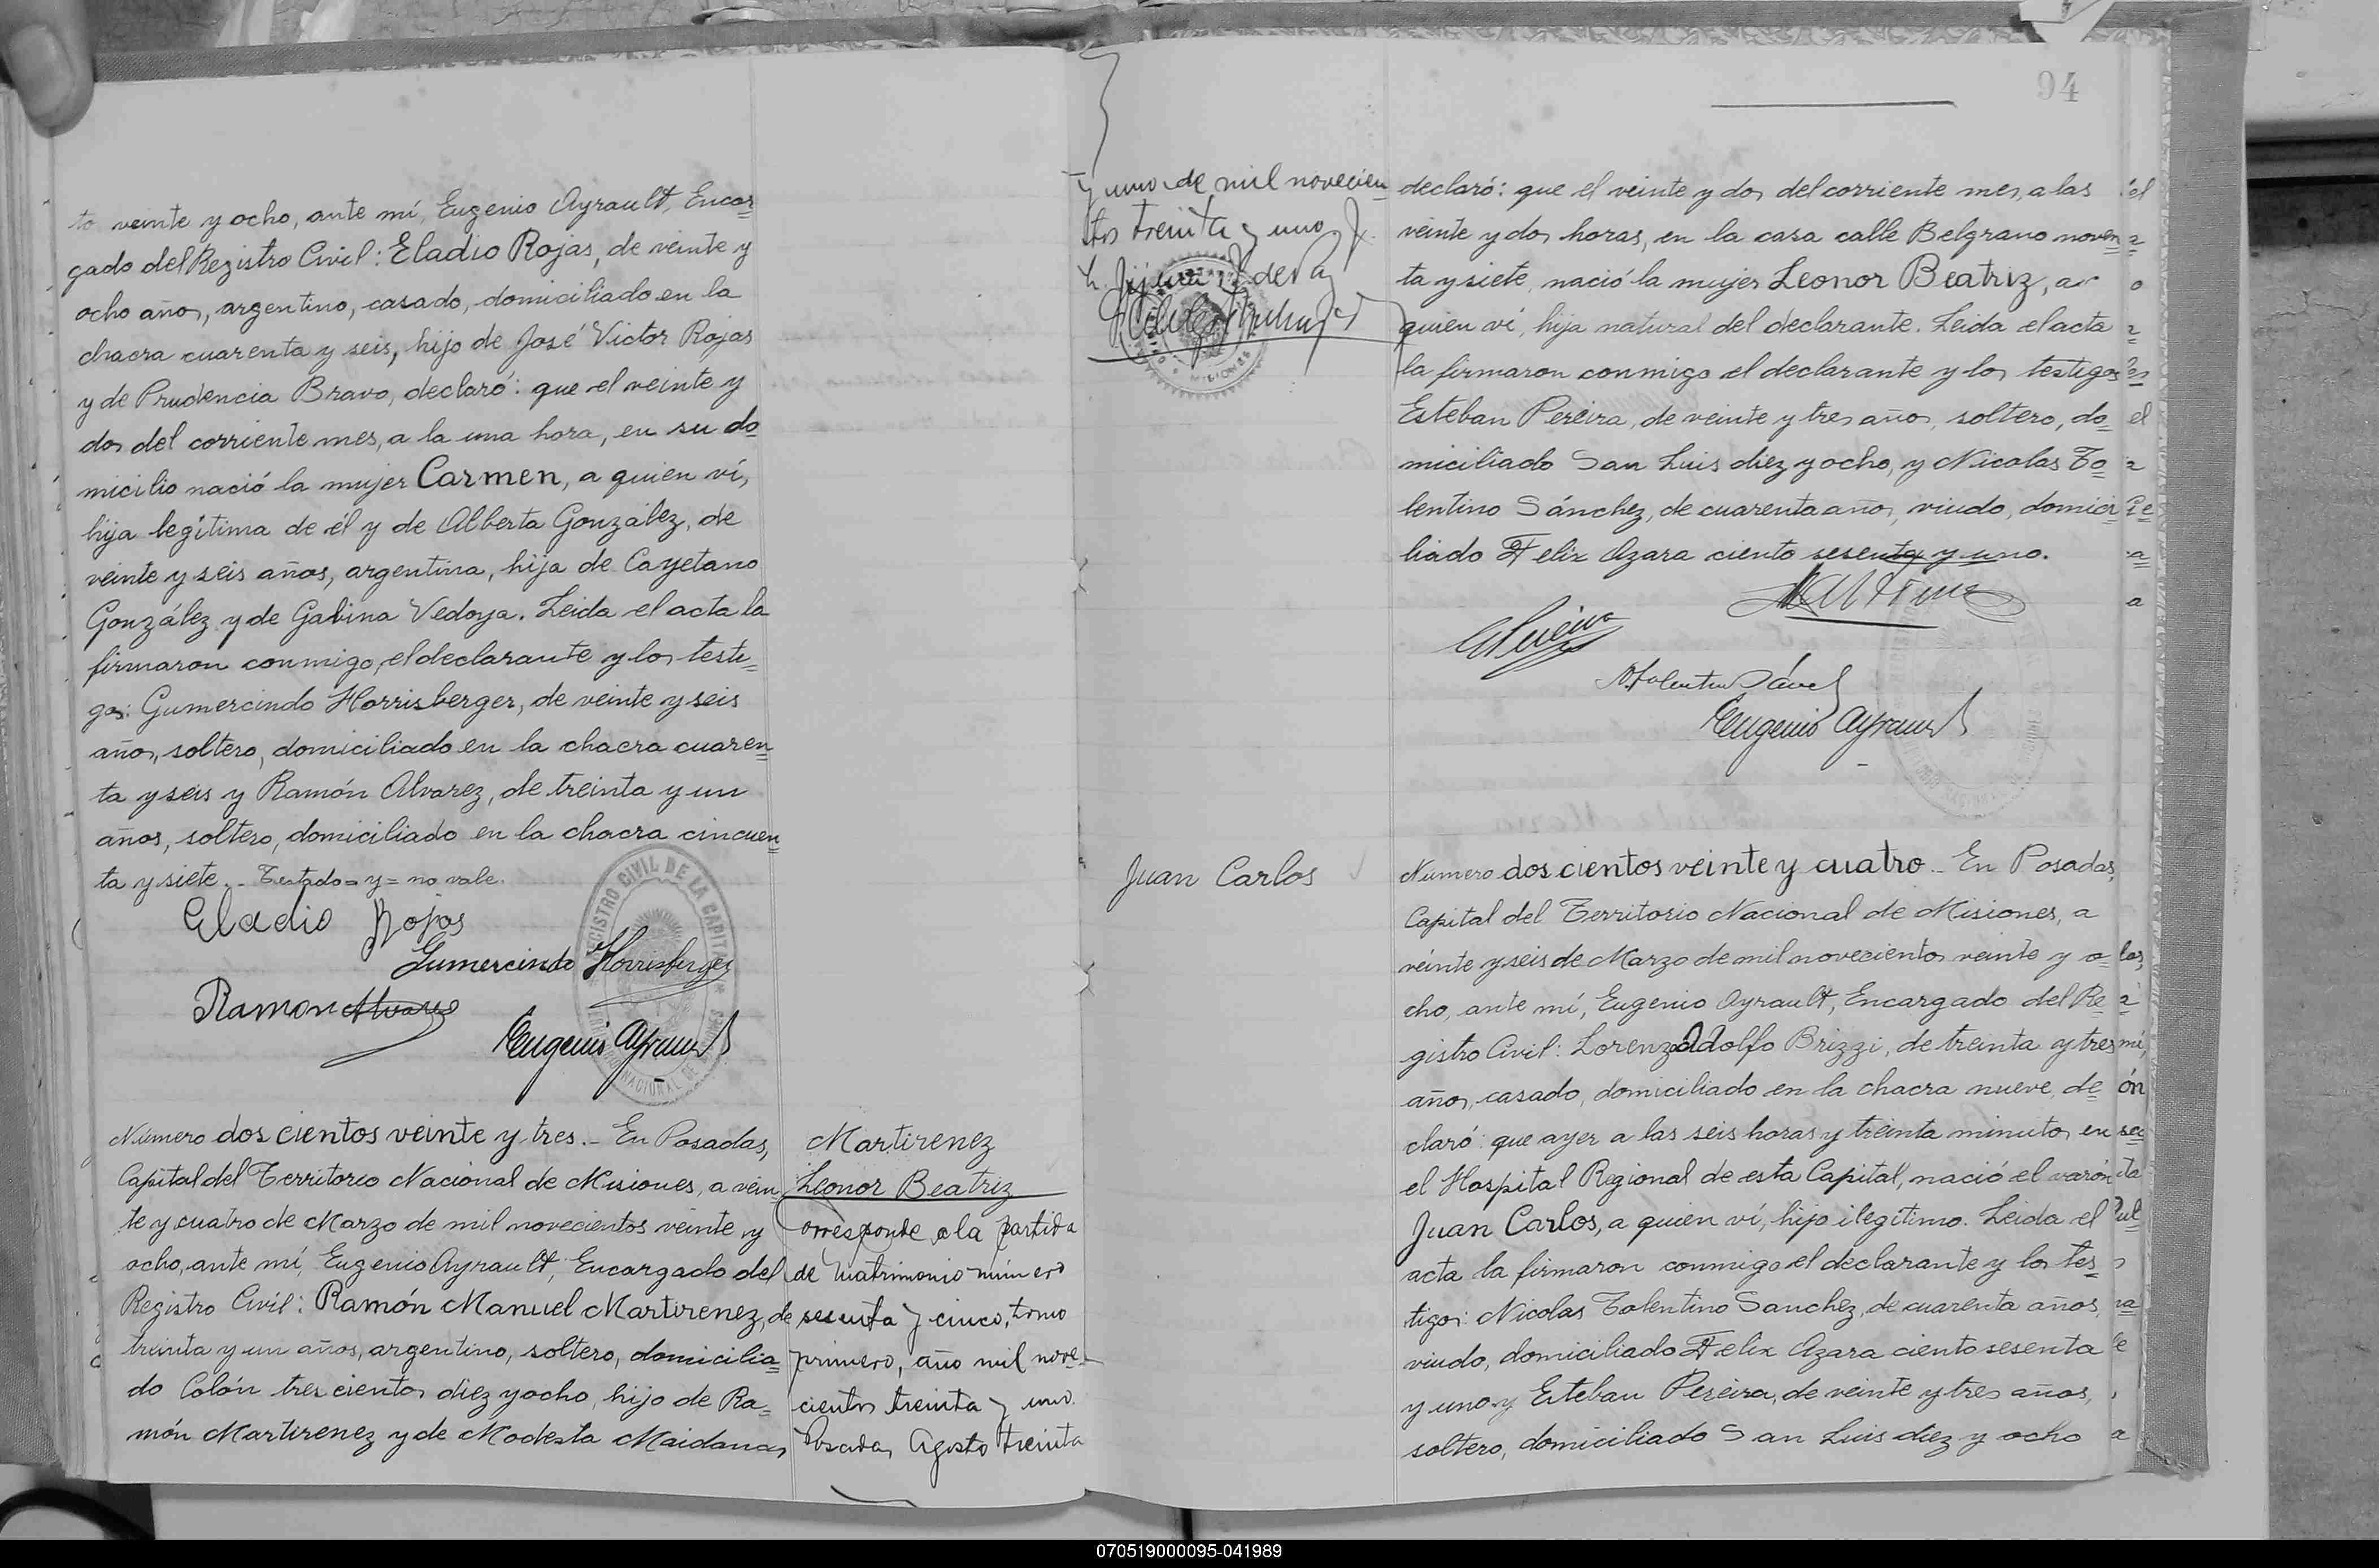 to veinte y ocho, ante mí, Eugenio Ayrault, Encar=
gado del Registro Civil: Eladio Rojas, de veinte y
ocho años, argentino, casado, domiciliado en la
chacra cuarenta y seis, hijo de José Victor Rojas
y de Prudencia Bravo, declaró: que el veinte y
dos del corriente mes, a la una hora, en su do=
micilio nació la mujer Carmen, a quien ví,
hija legítima de él y de Alberta González, de
veinte y seis años, argentina, hija de Cayetano
González y de Gabina Vedoya. Leida el acta la
firmaron conmigo, el declarante y los testi=
gos: Gumercindo Horrisberger, de veinte y seis
años, soltero, domiciliado en la chacra cuaren=
ta y seis y Ramón Alvarez, de treinta y un
años, soltero, domiciliado en la chacra cincuen=
ta y siete.- Testado=y=no vale.
Eladio Rojas
Gumercindo Horrisberger
Ramon Alvarez
Eugenio Ayrault
REGISTRO CIVIL DE LA CAPITAL
Número dos cientos veinte y tres.- En Posadas,
Capital del Territorio Nacional de Misiones, a vein
te y cuatro de Marzo de mil novecientos veinte y
ocho, ante mí, Eugenio Ayrault, Encargado del
Registro Civil: Ramón Manuel Martirenez, de
treinta y un años, argentino, soltero, domicilia=
do Colón tres cientos diez y ocho, hijo de Ra=
món Martirenez y de Modesta Maidana,
Martirenez
Leonor Beatriz
Corresponde a la partida
de matrimonio número
sesenta y cinco, tomo
primero, año mil nove-
cientos treinta y uno.
Posadas, Agosto treinta
y uno de mil novecien
tos treinta y uno
94
declaró: que el veinte y dos del corriente mes, a las
veinte y dos horas, en la casa calle Belgrano noven=
ta y siete, nació la mujer Leonor Beatriz, a
quien ví, hija natural del declarante. Leida el acta
la firmaron conmigo el declarante y los testigos
Esteban Pereira, de veinte y tres años, soltero, do=
miciliado San Luis diez y ocho, y Nicolas To=
lentino Sánchez, de cuarenta años, viudo, domici=
liado Felix Azara ciento sesenta y uno.
Eugenio Ayrault
Juan Carlos
Número dos cientos veinte y cuatro.- En Posadas,
Capital del Territorio Nacional de Misiones, a
veinte y seis de Marzo de mil novecientos veinte y o=
cho, ante mí, Eugenio Ayrault, Encargado del Re=
gistro Civil: Lorenzo Adolfo Brizzi, de treinta y tres
años, casado, domiciliado en la chacra nueve, de=
claró: que ayer a las seis horas y treinta minutos, en
el Hospital Regional de esta Capital, nació el varón
Juan Carlos, a quien ví, hijo ilegítimo. Leida el
acta la firmaron conmigo el declarante y los tes=
tigos: Nicolas Tolentino Sanchez, de cuarenta años,
viudo, domiciliado Felix Azara ciento sesenta
y uno y Esteban Pereira, de veinte y tres años,
soltero, domiciliado San Luis diez y ocho
070519000095-041989